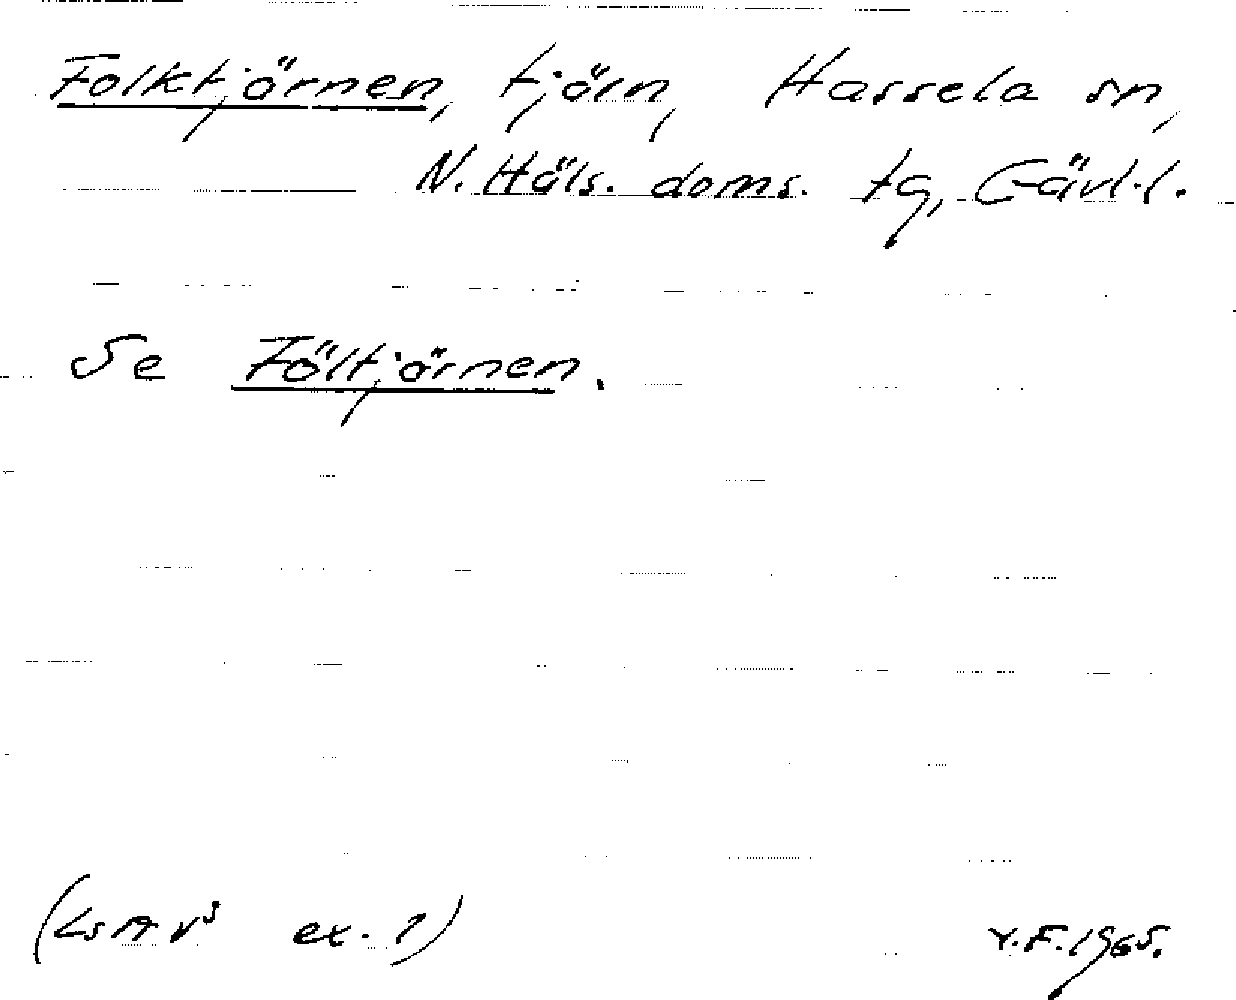 Folktjärnen, tjärn, Hassela sn,
N. Häls. doms. tg, Gävl.l.
Se Föltjärnen.
(LSA Vs ex. 1)
V.F. 1965.